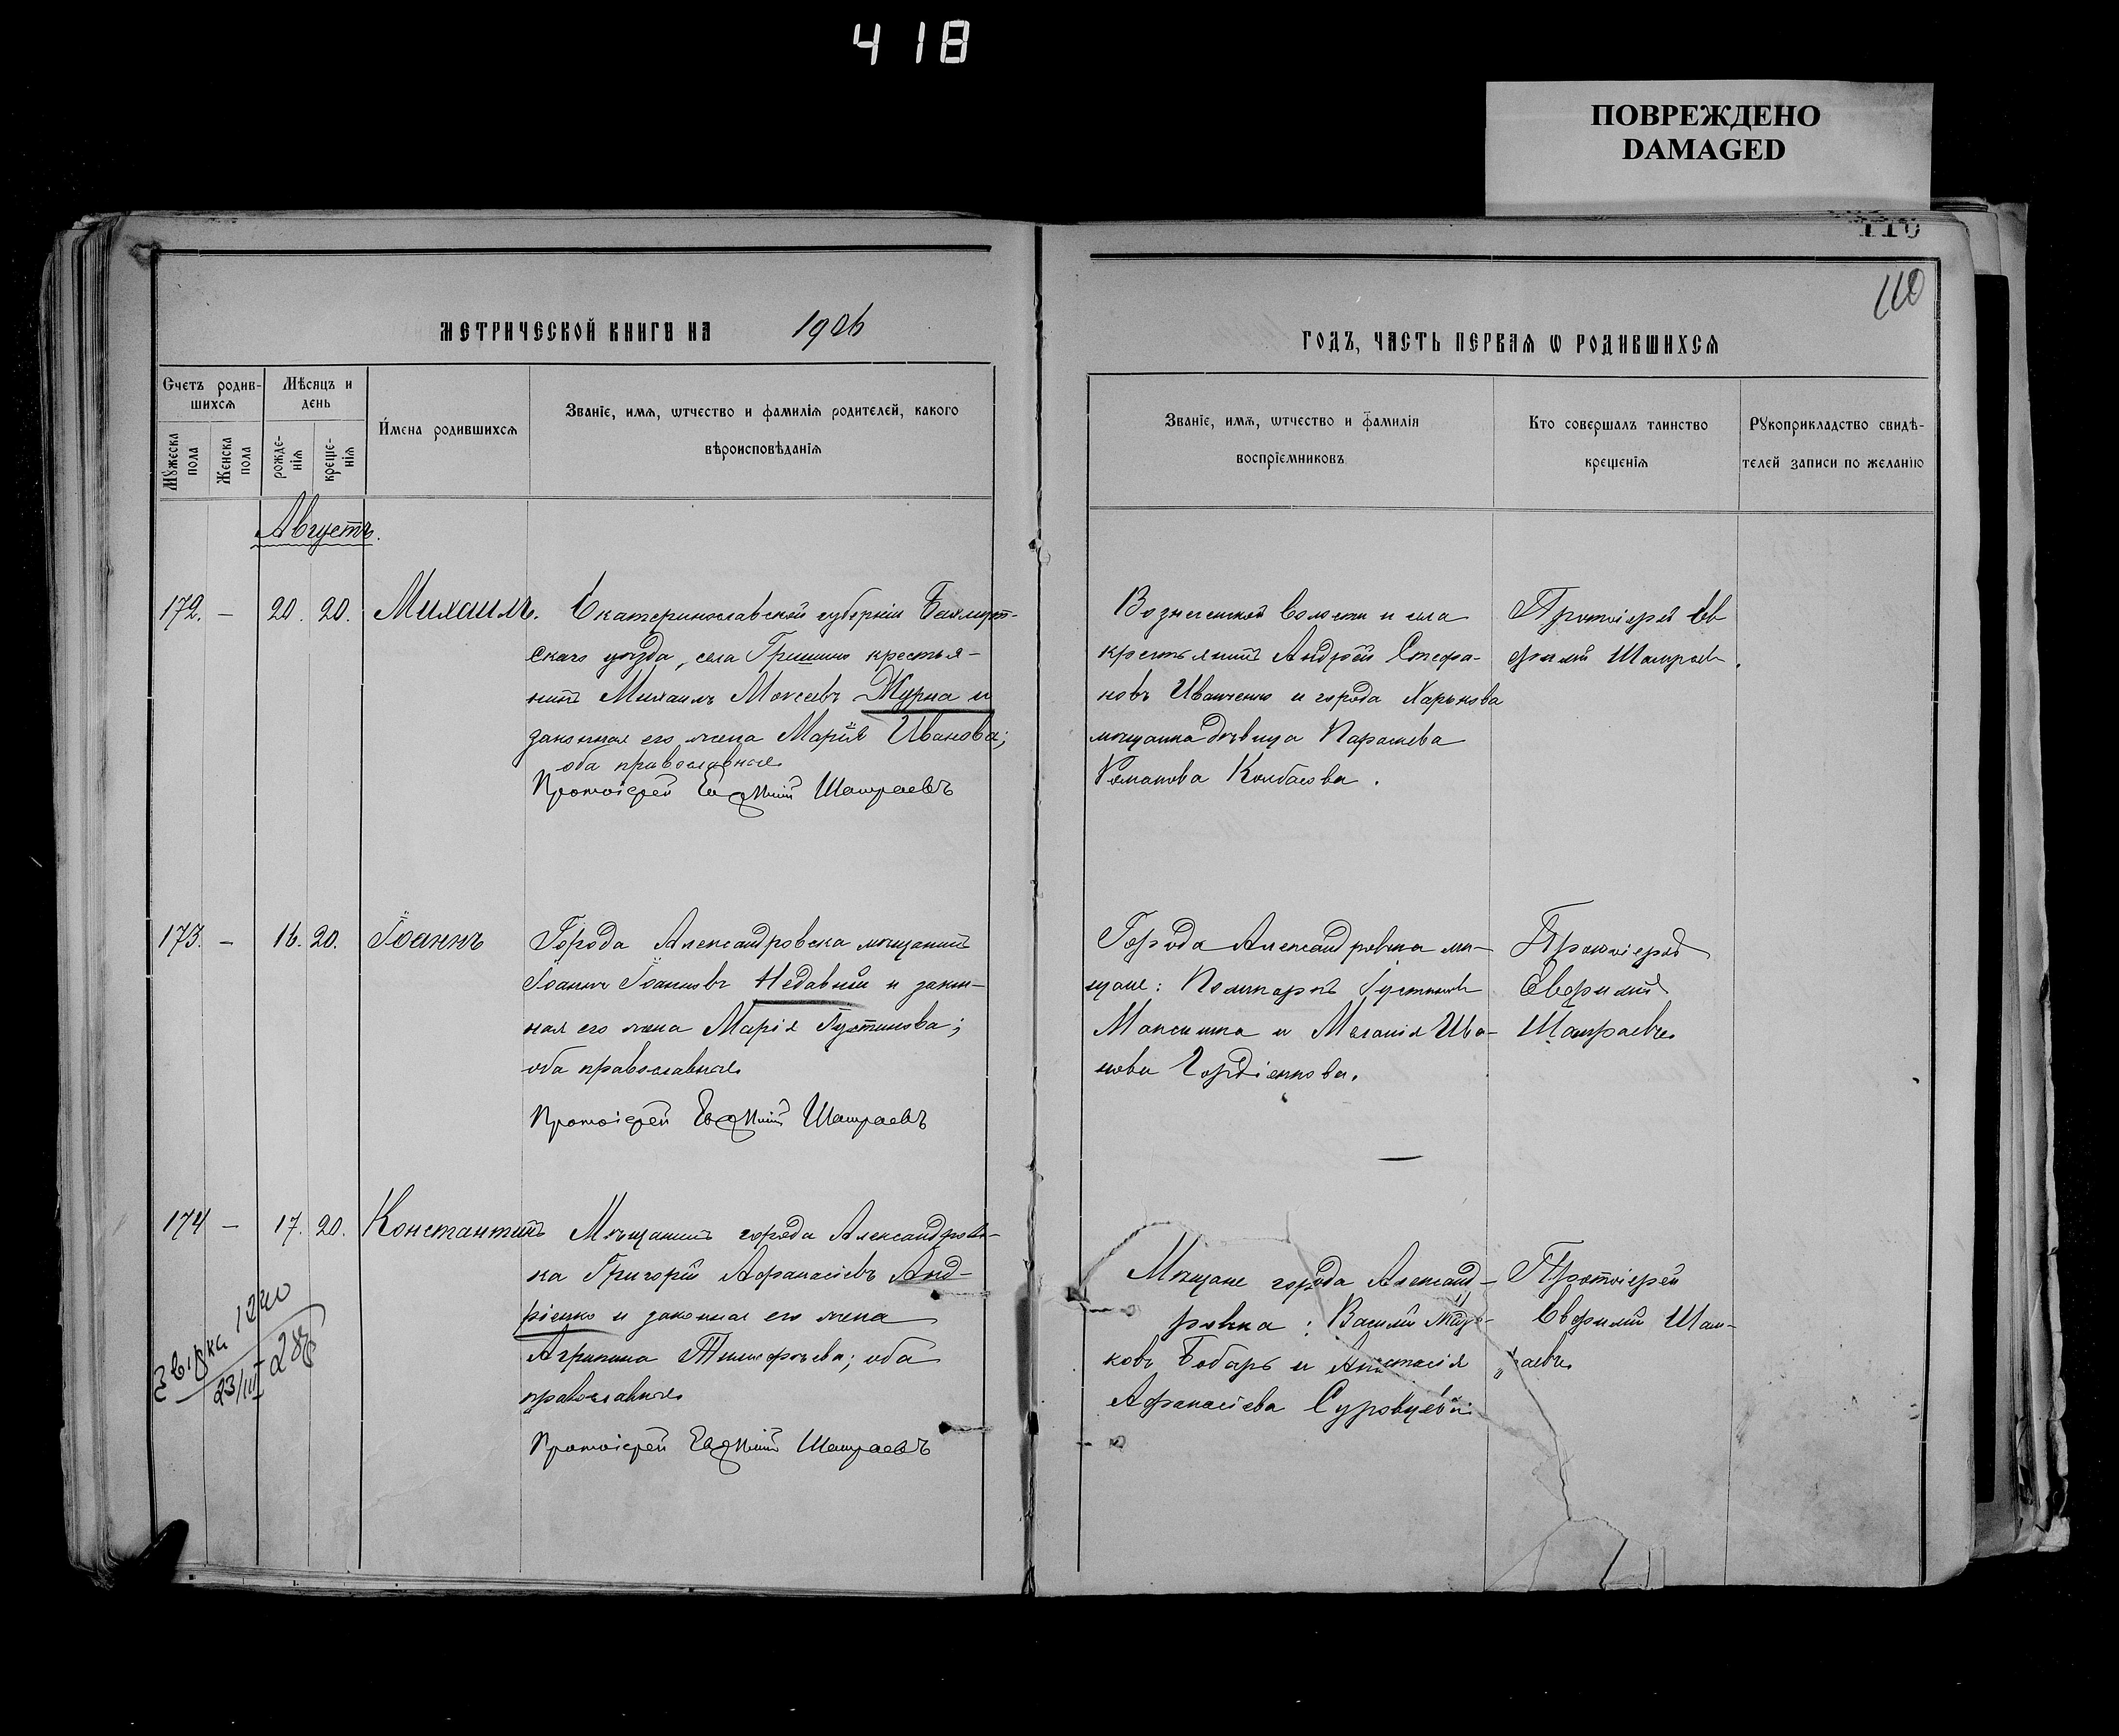 418
ПОВРЕЖДЕНО
DAMAGED
110
110
МЕТРИЧЕСКОЙ КНИГИ НА 1906
ГОДЪ, ЧАСТЬ ПЕРВАѦ Ѡ РОДИВШИХСѦ
Счетъ родив-
шихсѧ
Мꙋжеска пола
Женска пола
Мѣсѧцъ и
день
рожде-
нїѧ
креще-
нїѧ
Имена родившихсѧ
Званїе, имѧ, ѡтчество и фамилїѧ родителей, какого
вѣроисповѣданїѧ
Званїе, имѧ, ѡтчество и фамилїѧ
воспрїемниковъ
Кто совершалъ таинство
крещенїѧ
Рꙋкоприкладство свидѣ-
телей записи по желанїю
Августъ.
172. — 20. 20. Михаилъ.
Екатеринославской губернiи Бахмут-
скаго уѣзда, села Гришина крестья-
нинъ Михаилъ Моисеевъ Журка и
законная его жена Марiя Иванова;
оба православные.
Протоiерей Евѳимiй Шатраевъ
Вознесенской волости и села
крестьянинъ Андрей Стефа-
новъ Иванченко и города Харькова
мѣщанка дѣвица Параскева
Романова Колбасова.
Протоiерей Ев
фимiй Шатраевъ.
173. — 16. 20. Iоаннъ
Города Александровска мѣщанинъ
Iоаннъ Iоанновъ Недавнiй и закон-
ная его жена Марiя Iустинова;
оба православные.
Протоiерей Евѳимiй Шатраевъ
Города Александровска мѣ-
щане: Поликарпъ Iустиновъ
Максимка и Меланiя Ива-
нова Гордiенкова.
Протоiерей
Евфимiй
Шатраевъ.
174 — 17. 20. Константинъ
Мѣщанинъ города Александровс-
ка Григорiй Афанасiевъ Анд-
рiенко и законная его жена
Агрипина Тимофѣева; оба
православные.
Протоiерей Евѳимiй Шатраевъ
Мѣщане города Александ-
ровска: Василiй
ковъ Бобарь и Анастасiя
Афанасiева Суровцева.
Протоiерей
Евфимiй Шат-
раевъ.
23/III